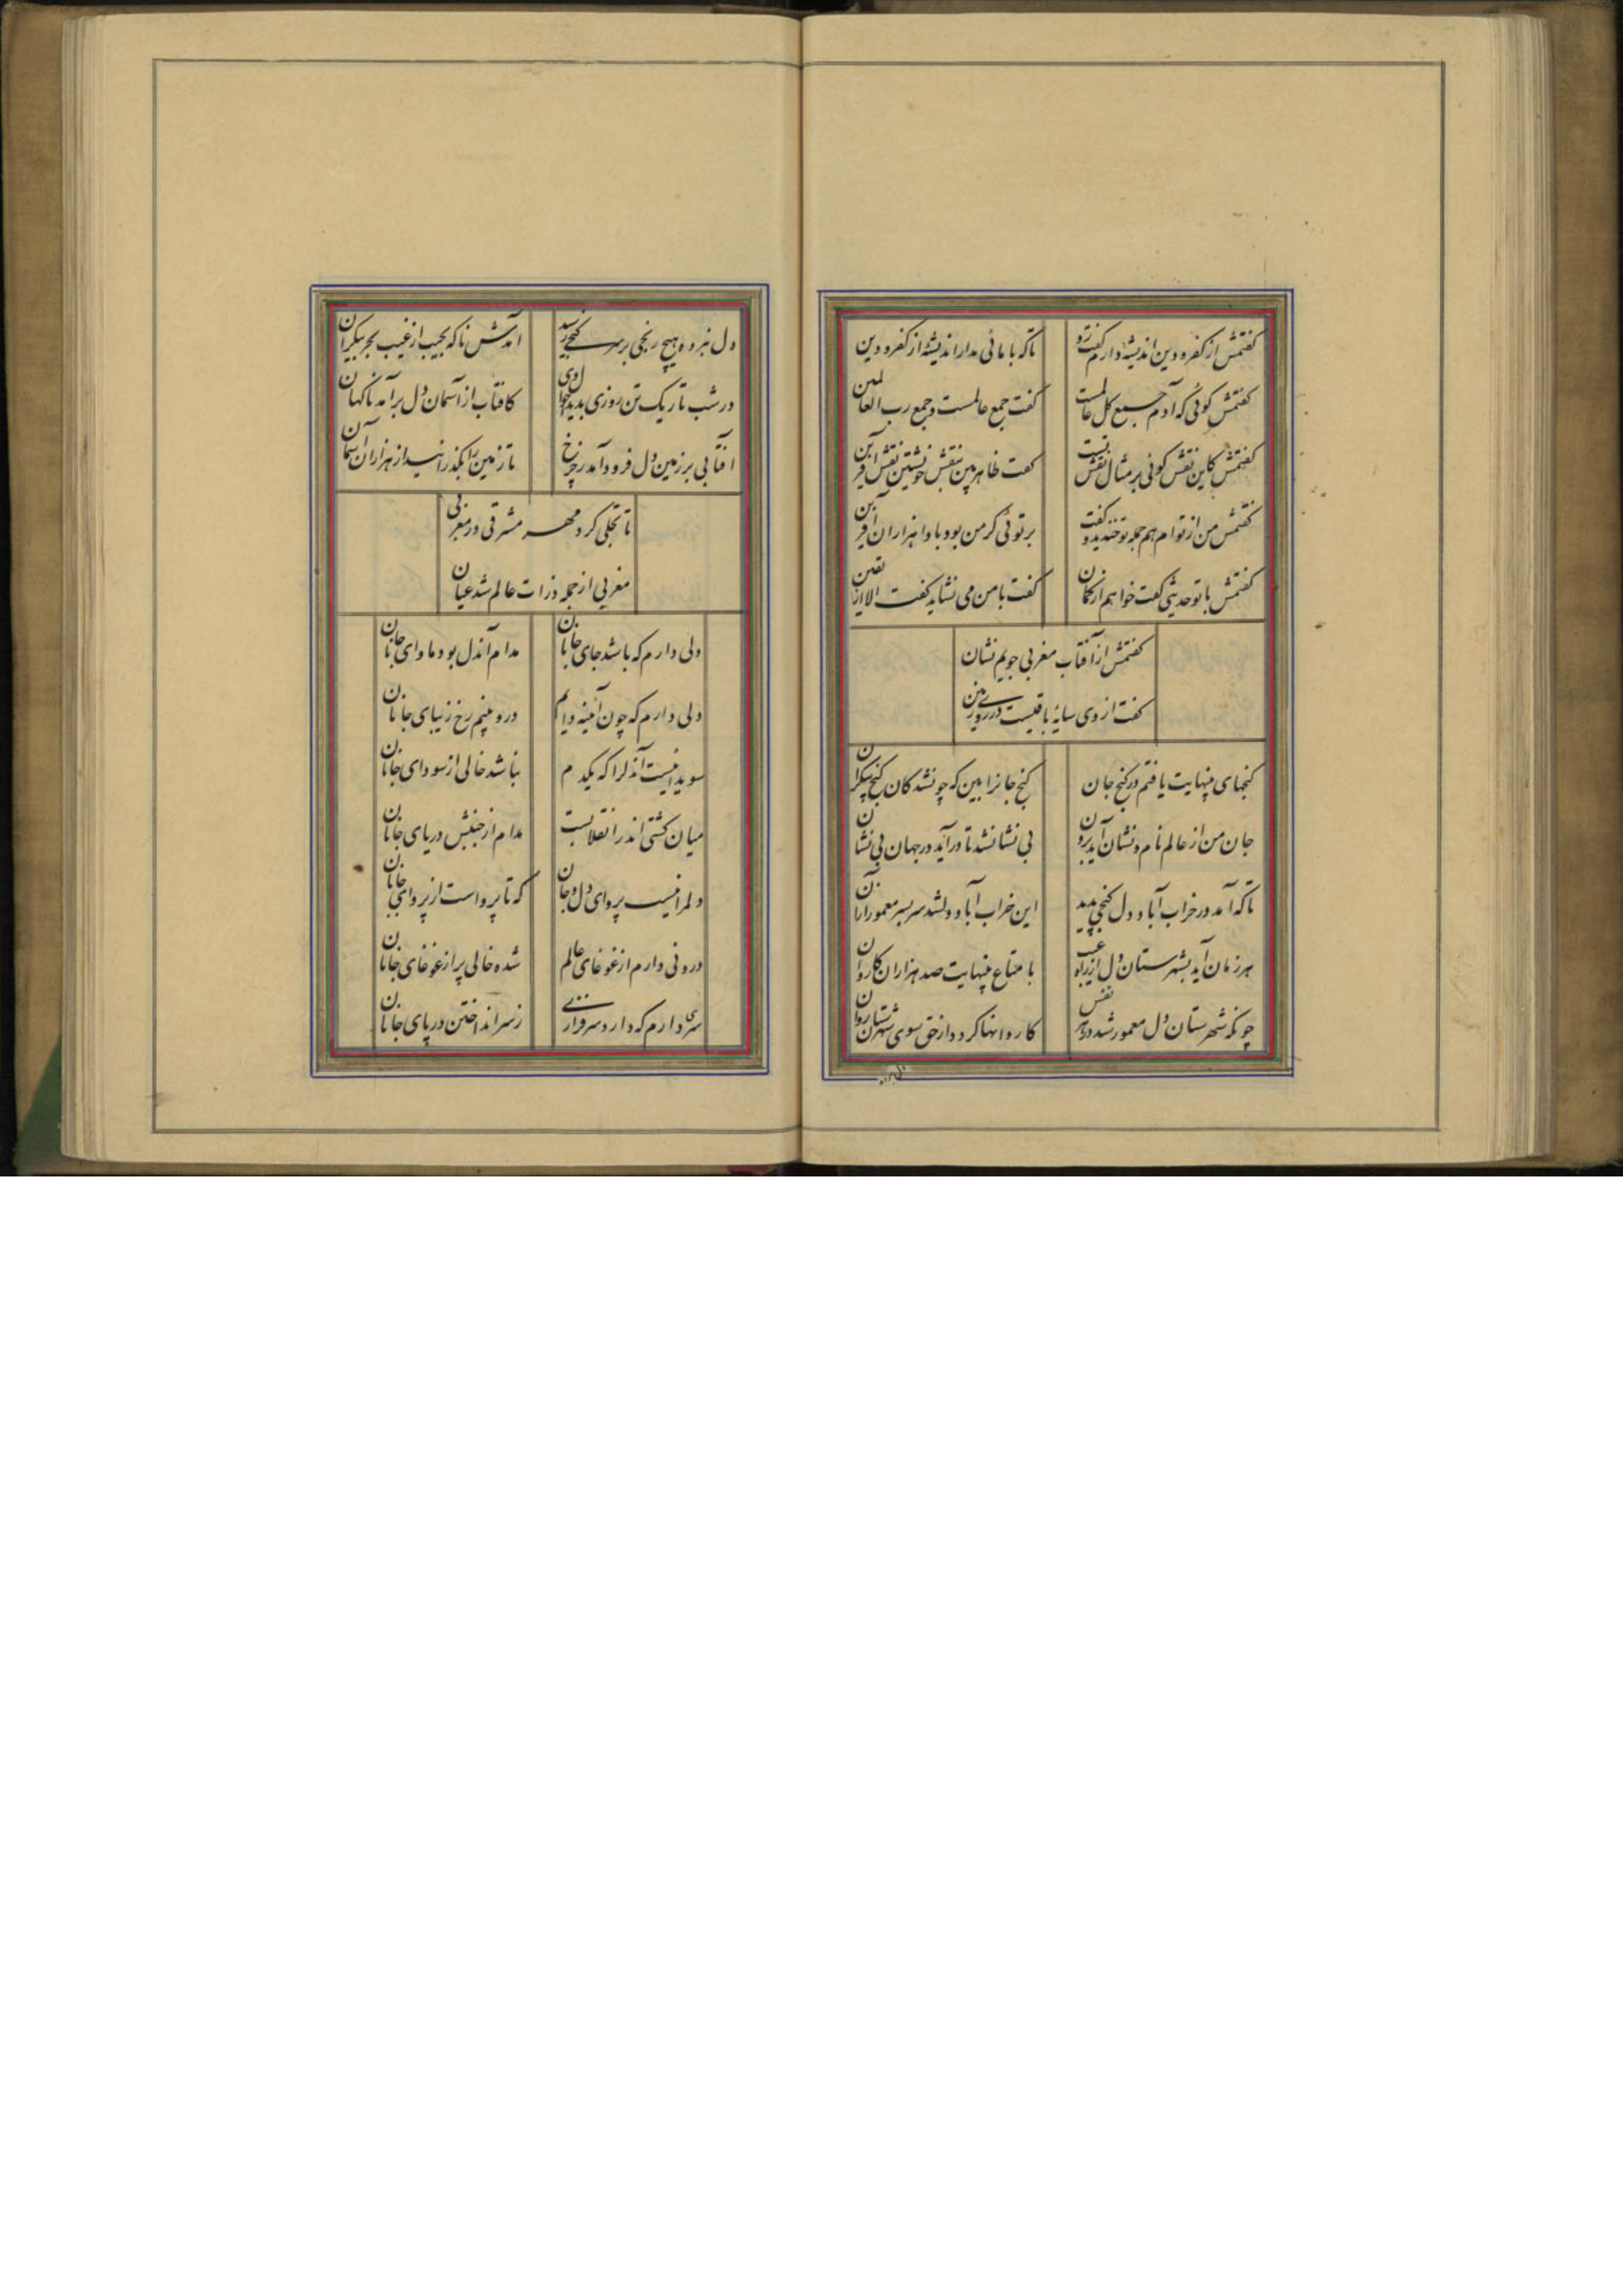 گفتمش از کفر و دین اندیشه دارم گفت رو
تا که با مائی مدار اندیشه از کفر و دین
گفتمش گوئی که آدم جمیع کل عالمست
گفت جمع عالمست و جمع رب العالمین
گفتمش کاین نقش گوئی بر مثال نقش کیست
گفت ظاهر بین بنقش خویشتن نقش آفرین
گفتمش من از توام هم جمله تو خندید و گفت
بر توئی کز من بود بادا هزاران آفرین
گفتمش با تو حدیثی گفت خواهم از گمان
گفت با من می نشاید گفت الا از یقین
گفتمش از آفتاب مغربی جویم نشان
گفت از وی سایه باقیست در روی زمین
گنجهای بینهایت یافتم در کنج جان
کنج جانرا بین که چونشد کان گنج بیکران
جان من از عالم نام و نشان آمد برون
بی نشانشد تا درآید در جهان بی نشان
تا که آمد در خراب آباد دل گنجی پدید
این خراب آباد دلشد سربسر معمور از آن
هر زمان آید بشهرستان دل از راه غیب
با متاع بینهایت صد هزاران کاروان
چونکه شهرستان دل معمور شد در هر نفس
کاروانها گردد از حق سوی شهرستان روان
دل نبرده هیچ رنجی بر سر گنجی رسید
آمدش ناگه بجیب از غیب بحر بیکران
در شب تاریک تن روزی پدید
کافتاب از آسمان دل برآمد ناگهان
آفتابی بر زمین دل فرود آمد ز چرخ
تا زمین را بگذرانید از هزاران آسمان
تا تجلی کرد مهر مشرقی در مغربی
مغربی از جمله ذرات عالم شد عیان
دلی دارم که باشد جای جانان
مدام آندل بود ماوای جانان
دلی دارم که چون آئینه دایم
درو بینم رخ زیبای جانان
سویدا نیست آندلرا که یکدم
نباشد خالی از سودای جانان
میان کشتی اندر انقلابست
مدام از جنبش دریای جانان
دلمرا نیست پروای دل و جان
که تا پرواست از پروای جانان
درونی دارم از غوغای عالم
شده خالی پر از غوغای جانان
سری دارم که دارد سرفرازی
ز سر انداختن در پای جانان